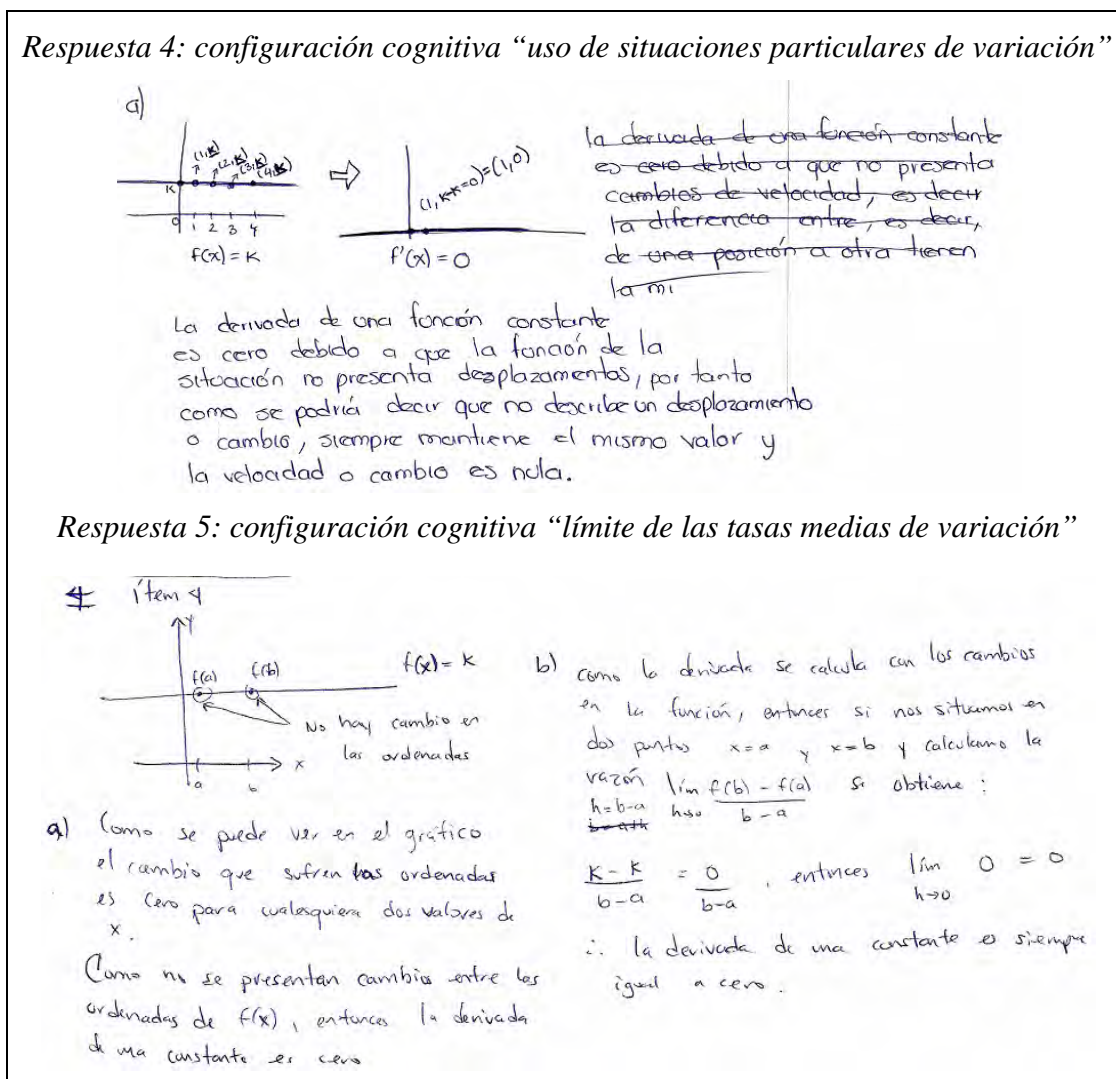 Respuesta 4: configuración cognitiva “uso de situaciones particulares de variación”
a)
(1,K) (2,K) (3,K) (4,K)
K
0 1 2 3 4
f(x) = K
⇒
(1, K-K=0)=(1,0)
f'(x) = 0
la derivada de una función constante
es cero debido a que no presenta
cambios de velocidad, es decir
la diferencia entre, es decir,
de una posición a otra tienen
la mi
La derivada de una función constante
es cero debido a que la función de la
situación no presenta desplazamentos, por tanto
como se podría decir que no describe un desplazamiento
o cambio, siempre mantiene el mismo valor y
la velocidad o cambio es nula.
Respuesta 5: configuración cognitiva “límite de las tasas medias de variación”
4 ítem 4
y
f(a) f(b) f(x) = K
No hay cambio en
las ordenadas
x
a b
a) Como se puede ver en el gráfico
el cambio que sufren las ordenadas
es cero para cualesquiera dos valores de
x.
Como no se presentan cambios entre las
ordenadas de f(x), entonces la derivada
de una constante es cero
b) como la derivada se calcula con los cambios
en la función, entonces si nos situamos en
dos puntos x=a y x=b y calculamo la
razón lím h→0 f(b) - f(a) / b - a se obtiene:
h=b-a
b=a+h
K - K / b-a = 0 / b-a , entonces lím h→0 0 = 0
∴ la derivada de una constante es siempre
igual a cero.